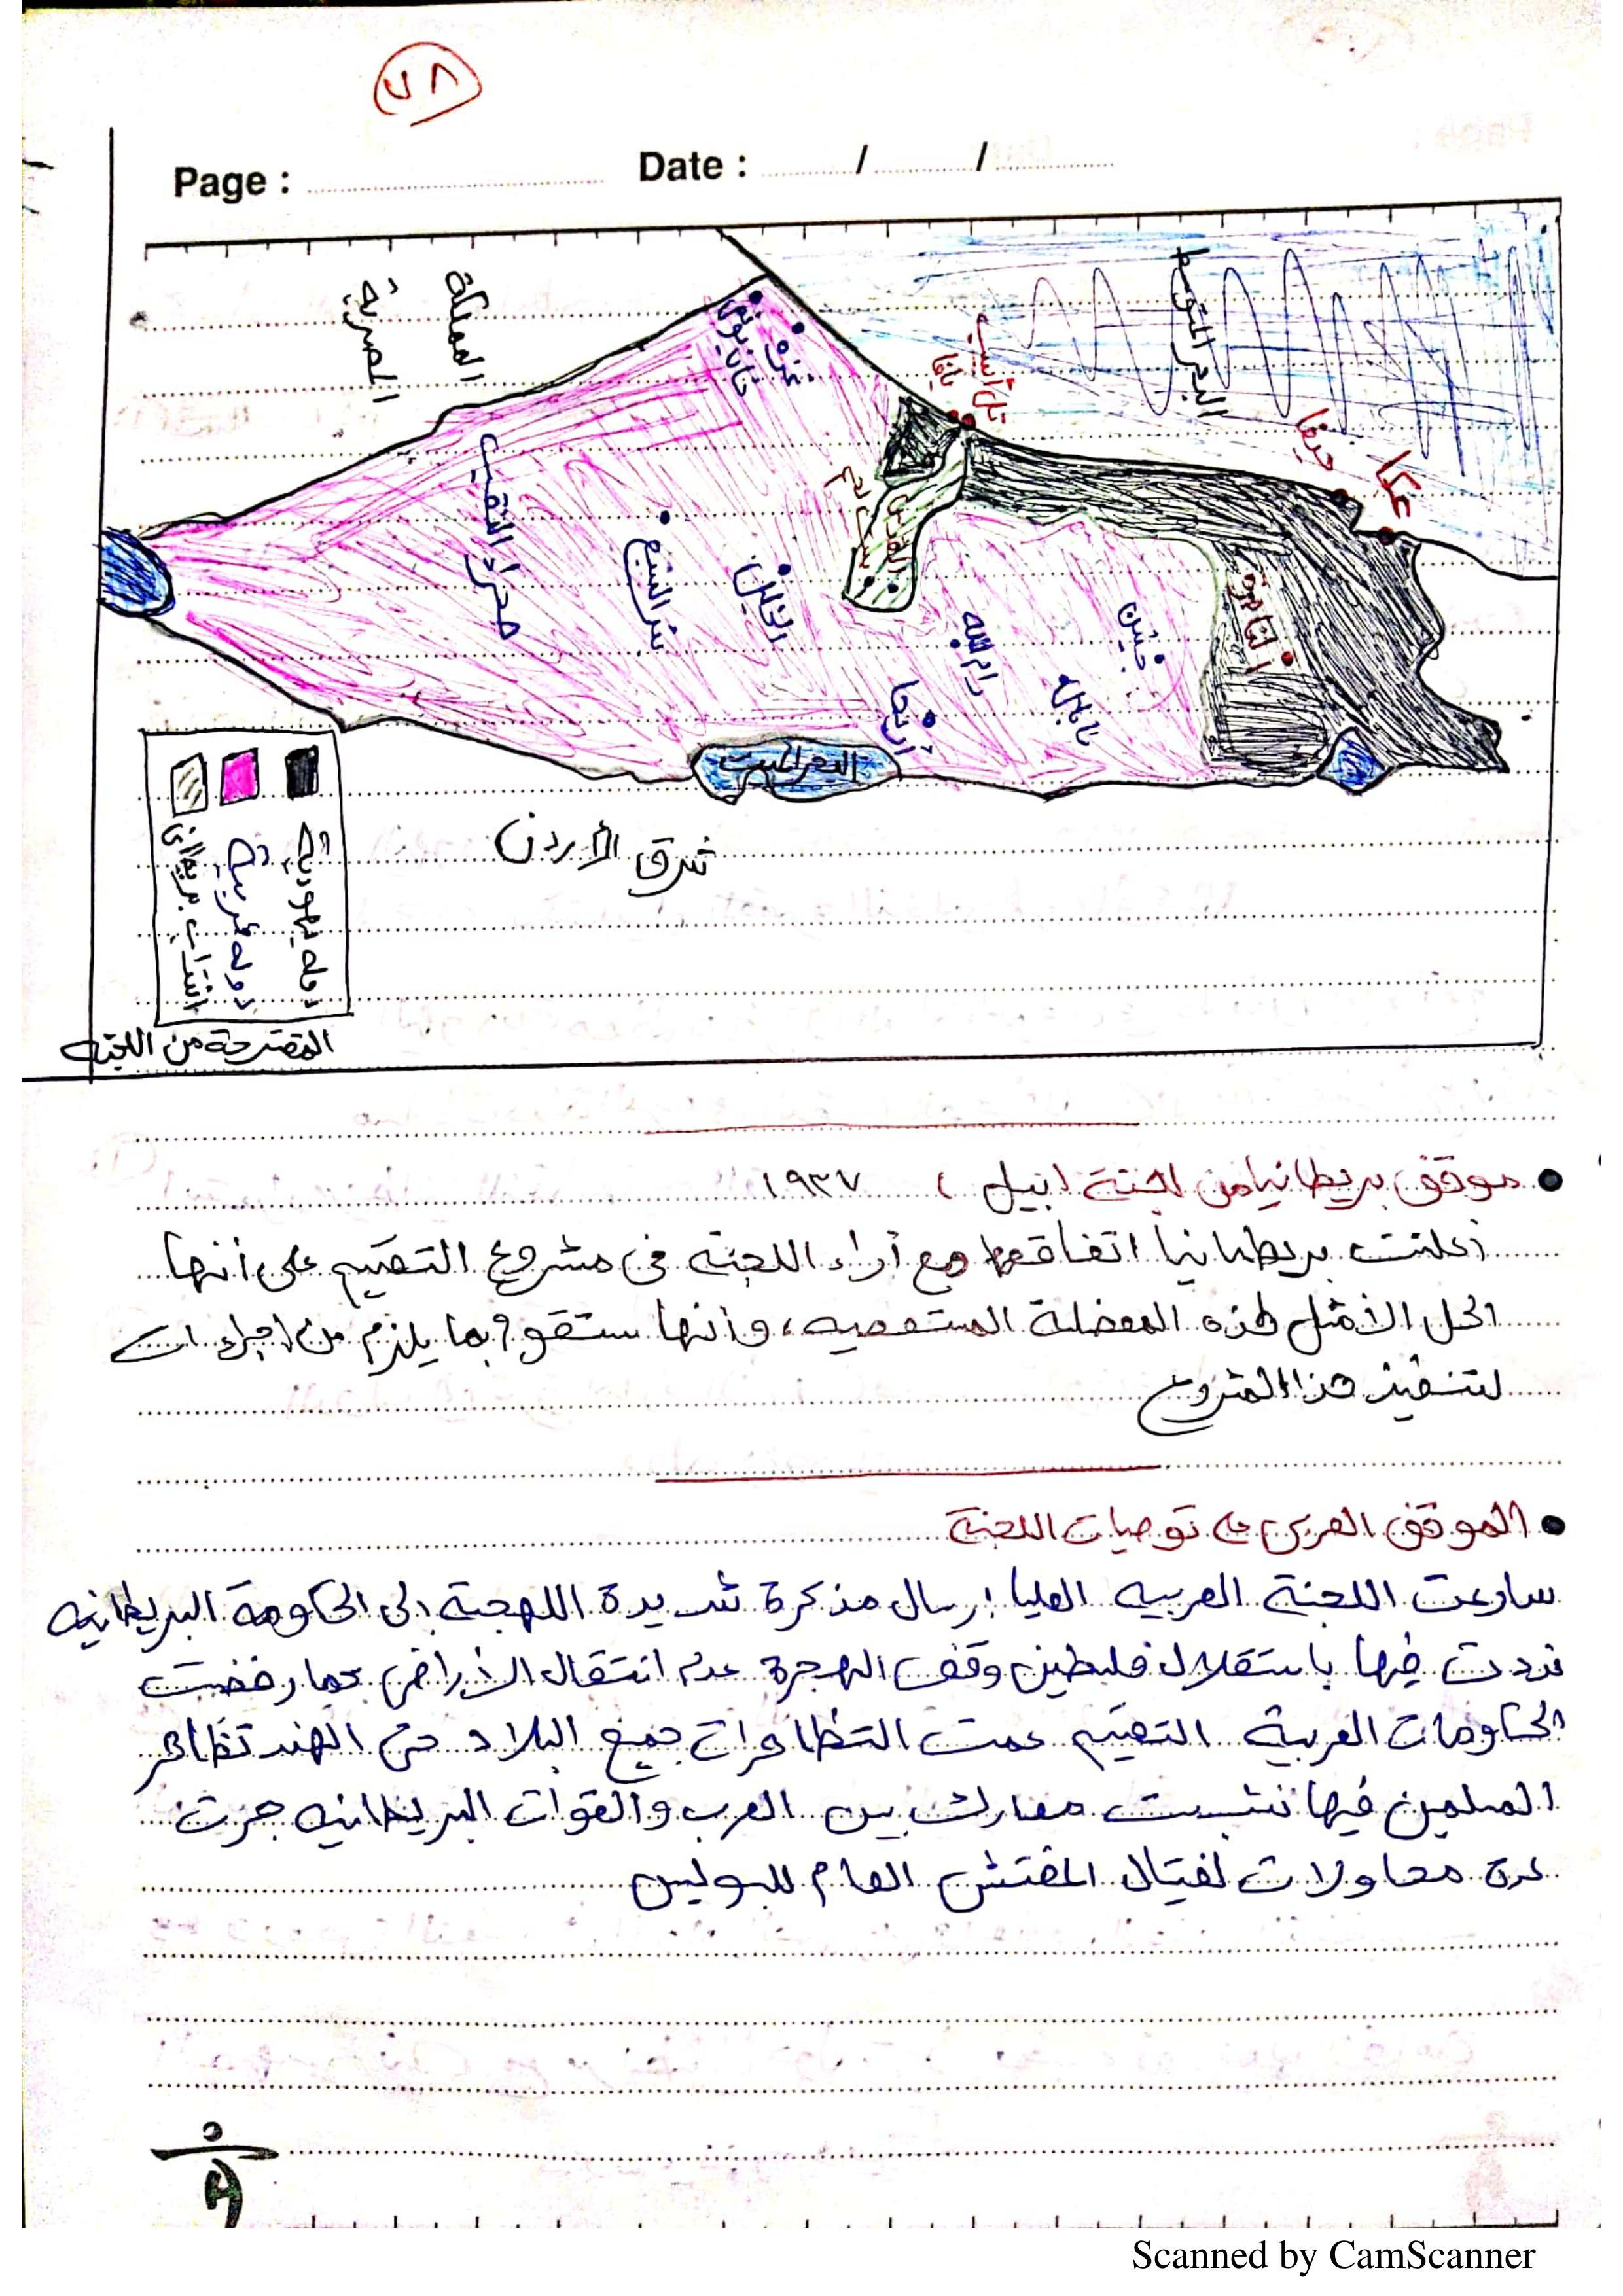 ٧٨
Page : Date : / /
المملكة
المصرية
البحر المتوسط
عكا
حيفا
تل أبيب
يافا
غزة
خان يونس
القدس
بيت لحم
الناصرة
جنين
نابلس
رام الله
أريحا
الخليل
بئر السبع
صحراء النقب
البحر الميت
شرق الأردن
دولة يهودية
دولة عربية
انتداب بريطاني
المقترحة من اللجنه
موقف بريطانيا من لجنة (بيل) ١٩٣٧
أعلنت بريطانيا اتفاقها مع أراء اللجنه فى مشروع التقسيم على أنها
الحل الأمثل لهذه المعضلة المستعصيه، وأنها ستقوم بما يلزم من اجراءات
لتنفيذ هذا المشروع
الموقف العربى من توصيات اللجنة
سارعت اللجنة العربيه العليا إرسال مذكرة شديدة اللهجة إلى الحكومة البريطانيه
نددت فيها باستقلال فلسطين وقف الهجرة عدم انتقال الأراضى كما رفضت
الحكومات العربية التقسيم عمت التظاهرات جميع البلاد حتى الهند تظاهر
المسلمين فيها نشبت معارك بين العرب والقوات البريطانيه جرت
عدة محاولات لغتيال المفتش العام للبوليس
Scanned by CamScanner